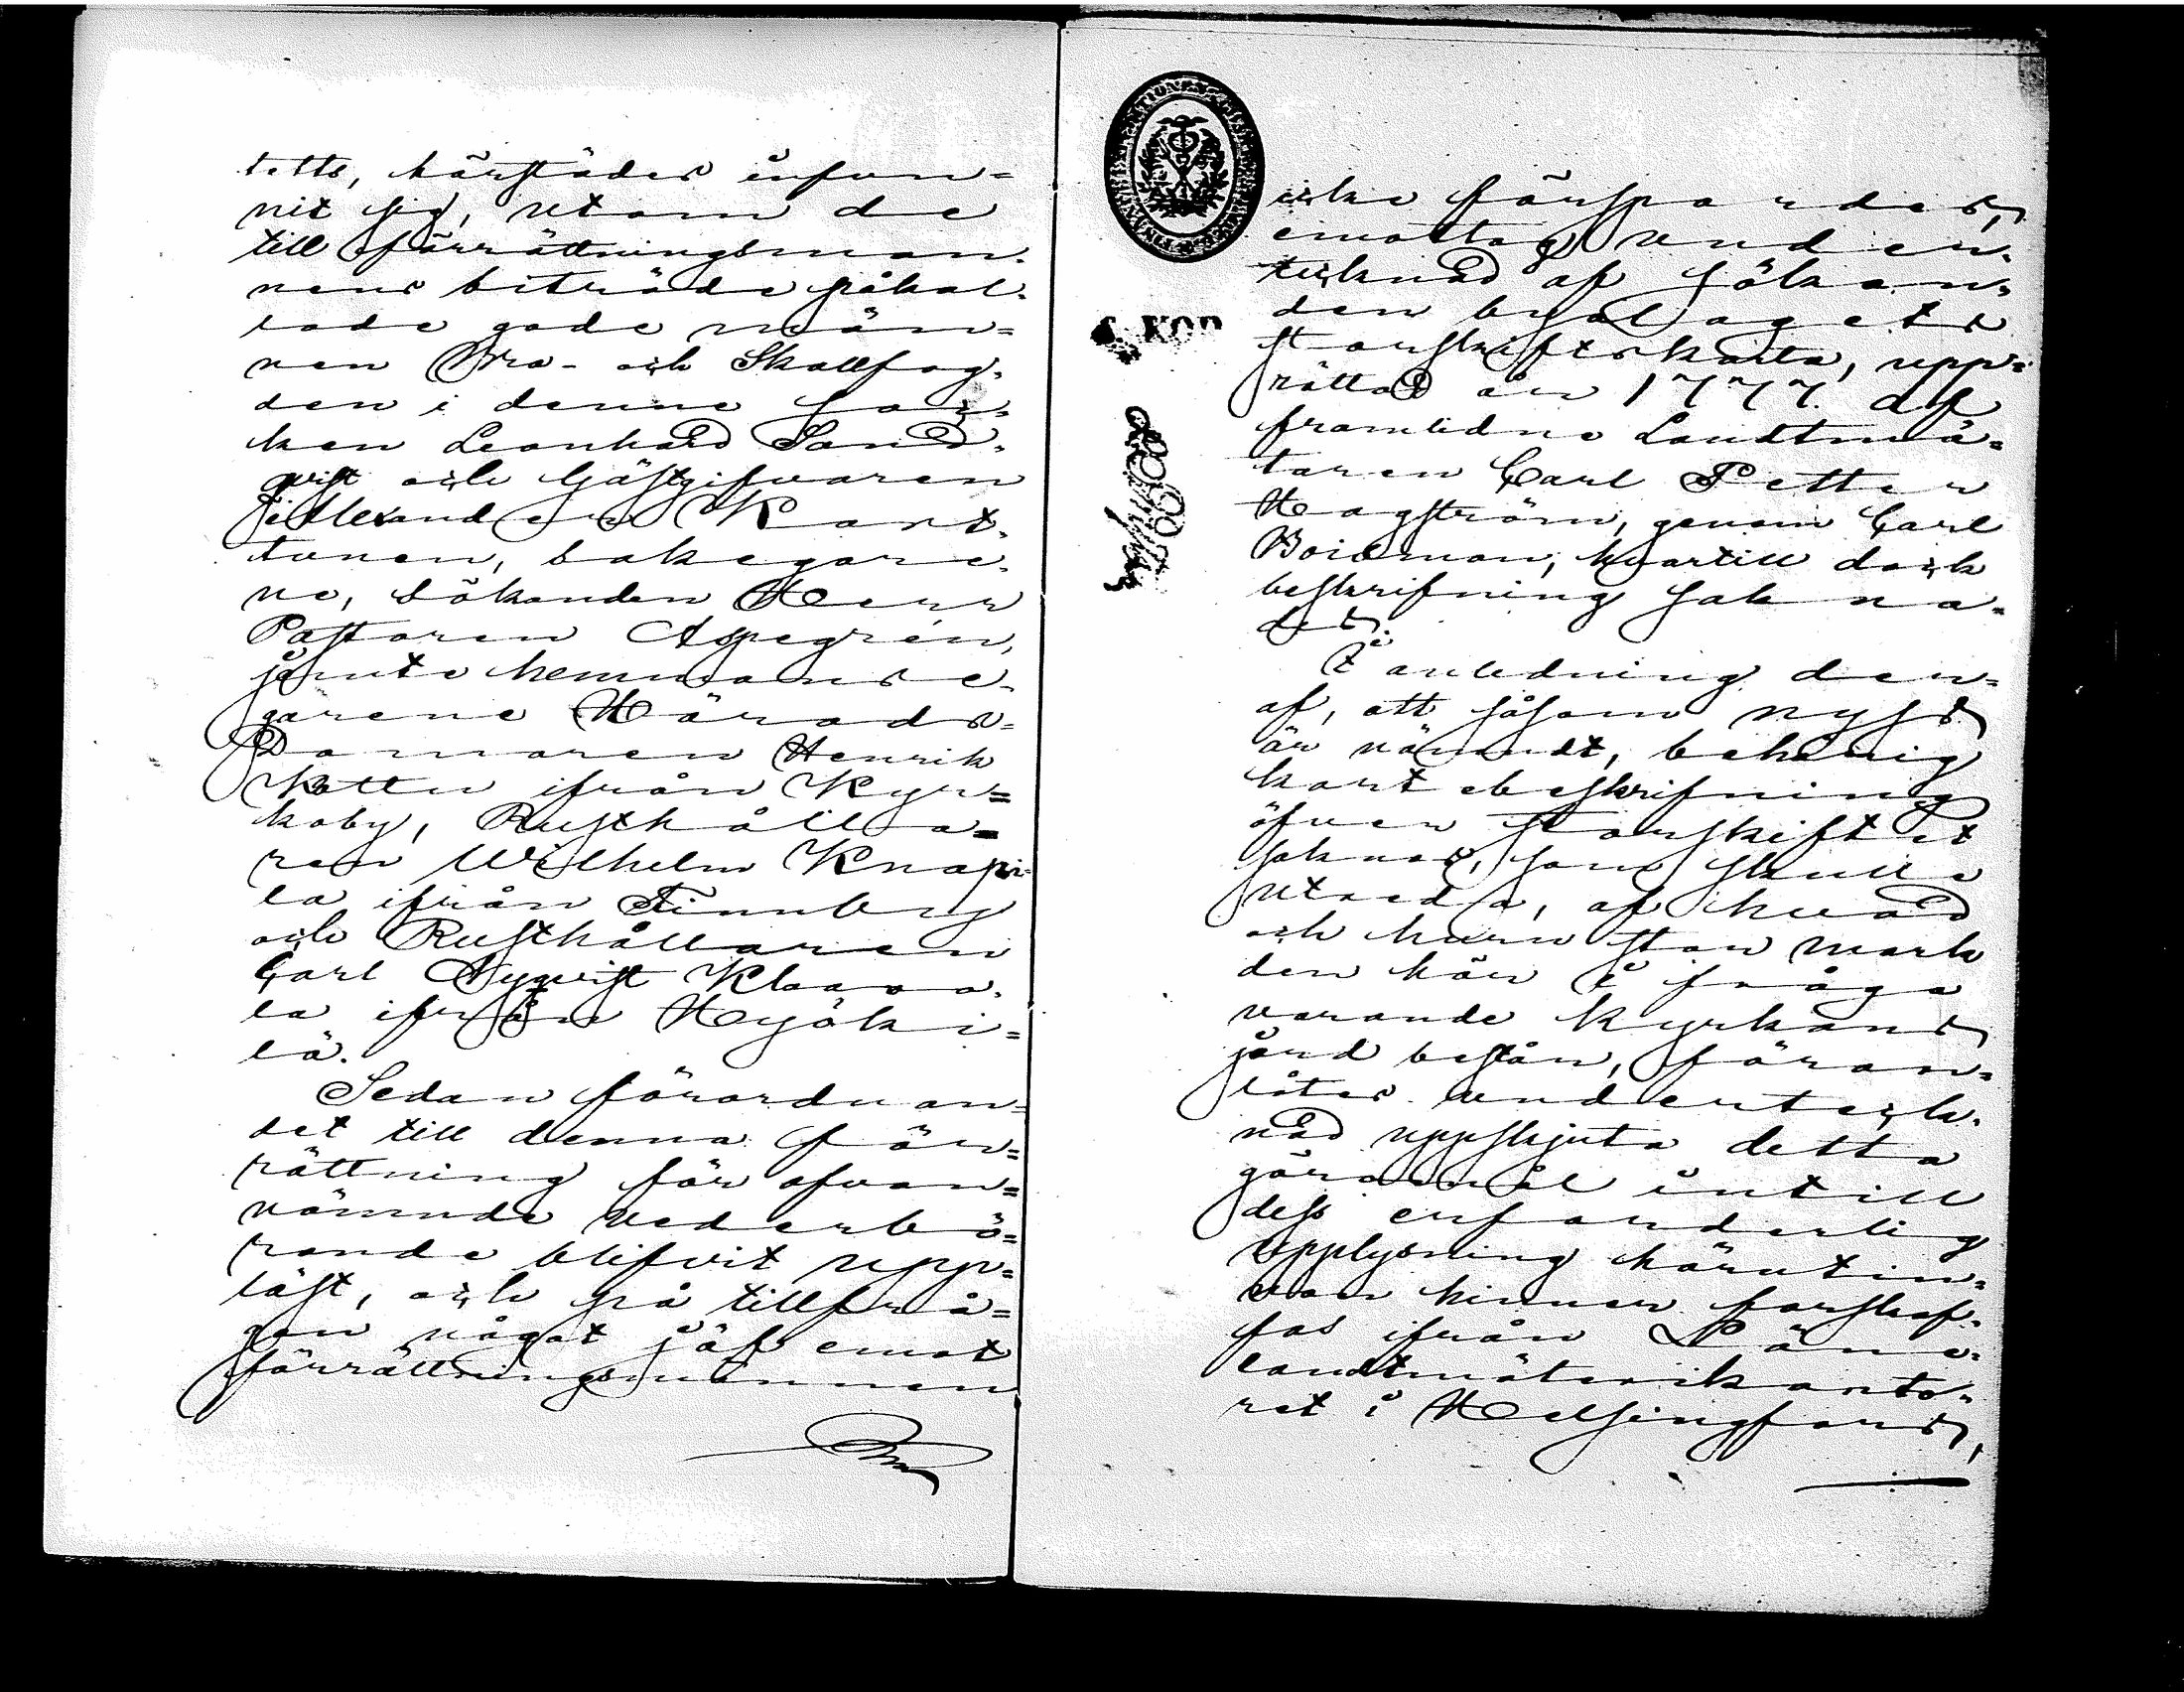 tetts, härstädes infun=
nit sig, utom de
till förrättningsman=
nens biträde påkal=
lade gode män=
nen Bro- och Skallfog=
den i denne soc=
ken Leonhard Sand=
qvist och Gästgifvaren
Alexander Kart=
tunen, bakegare=
ne, sökanden Herr
Pastoren Aspegrén,
jämte hemmanse=
garene Härads=
Domaren Henrik
Kotte ifrån Kyr=
koby, Rusthålla=
ren Wilhelm Knapi=
la ifrån Finnby
och Rusthållaren
Carl Nyqvist Klaava=
la ifrån Hyöki=
lä.
Sedan förordnan=
det till denna för=
rättning för ofvan=
nämnde vederbö=
rande blifvit upp=
läst, och på tillfrå=
gan något jäf emot
förrättningsmännen
icke försparades,
emottog under=
tecknad af sökan=
den byalagets
storskifteskarta, upp=
rättad år 1777 af
framlidne Landtmä=
taren Carl Petter
Hagström, genom Carl
Boisman, hvartill dock
beskrifning sakna=
des.
I anledning der=
af, att såsom nyss
är nämndt, behörig
kartebeskrifning
öfver storskiftet
saknas, som skulle
utreda, af hvad
och huru stor mark
den här i fråga
varande Kyrkans
jord består, föran=
låtes underteck=
nad uppskjuta detta
göromål intill
dess erforderlig
upplysning härutin=
nan hinner forskaf=
fas ifrån Läne=
landtmäterikonto=
ret i Helsingfors,